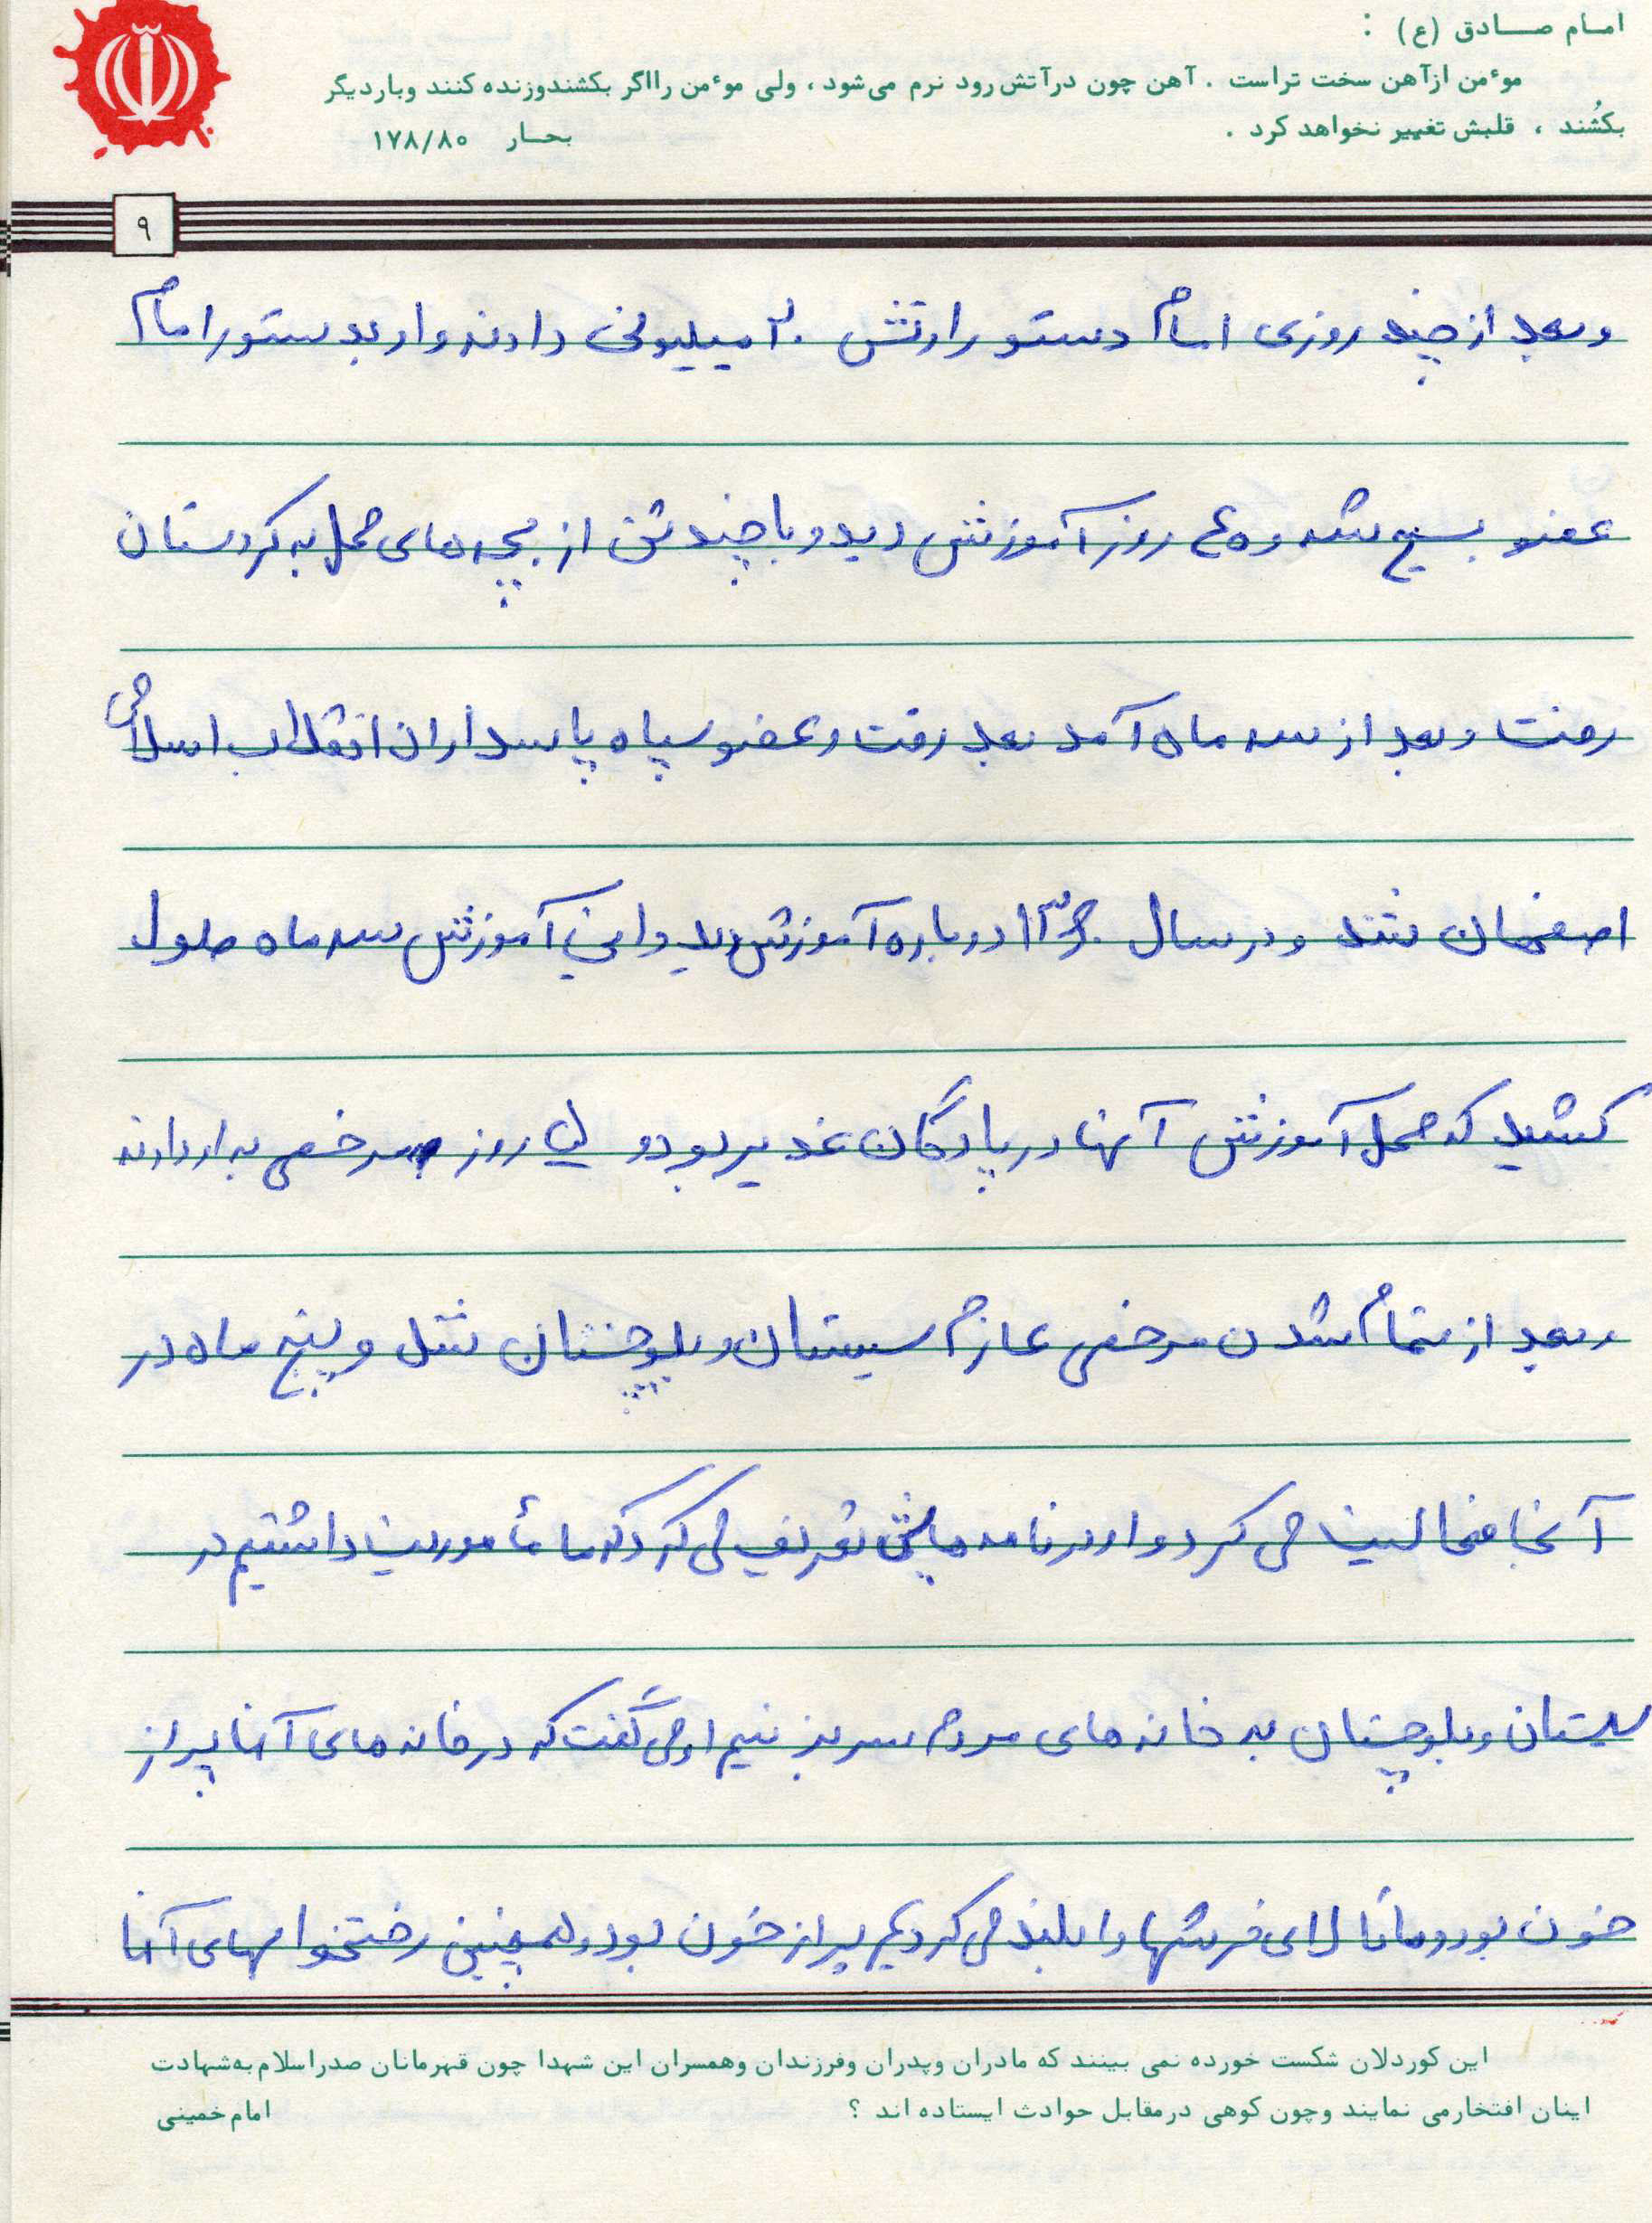 امام صادق (ع) :
موءمن ازآهن سخت تراست . آهن چون درآتش رود نرم می‌شود ، ولی موءمن رااگر بکشندوزنده کنند وباردیگر
بکُشند ، قلبش تغییر نخواهد کرد .
بحار ۱۷۸/۸۰
۹
وبعد از چند روزی امام دستور ارتش ۲۰ میلیونی دادند واو بدستور امام
عضو بسیج شد و ۴۵ روز آموزش دید و با چند تن از بچه های محل به کردستان
رفت وبعد از سه ماه آمد بعد رفت و عضو سپاه پاسداران انقلاب اسلامی
اصفهان شد و در سال ۱۳۶۰ دوباره آموزش دید و این آموزش سه ماه طول
کشید که محل آموزش آنها در پادگان غدیر بود و روز مرخصی به او دادند
وبعد از تمام شدن مرخصی عازم سیستان و بلوچستان شد و پنج ماه در
آنجا فعالیت می کرد و او در نامه هایش تعریف می کرد که ما مأموریت داشتیم در
سیستان و بلوچستان به خانه های مردم سر بزنیم او می گفت که در خانه های آنها پر از
خون بود و ما تا لای فرشها را بلند می کردیم پر از خون بود و همچنین رختخوابهای آنها
این کوردلان شکست خورده نمی بینند که مادران وپدران وفرزندان وهمسران این شهدا چون قهرمانان صدراسلام به‌شهادت
اینان افتخارمی نمایند وچون کوهی درمقابل حوادث ایستاده اند ؟
امام خمینی